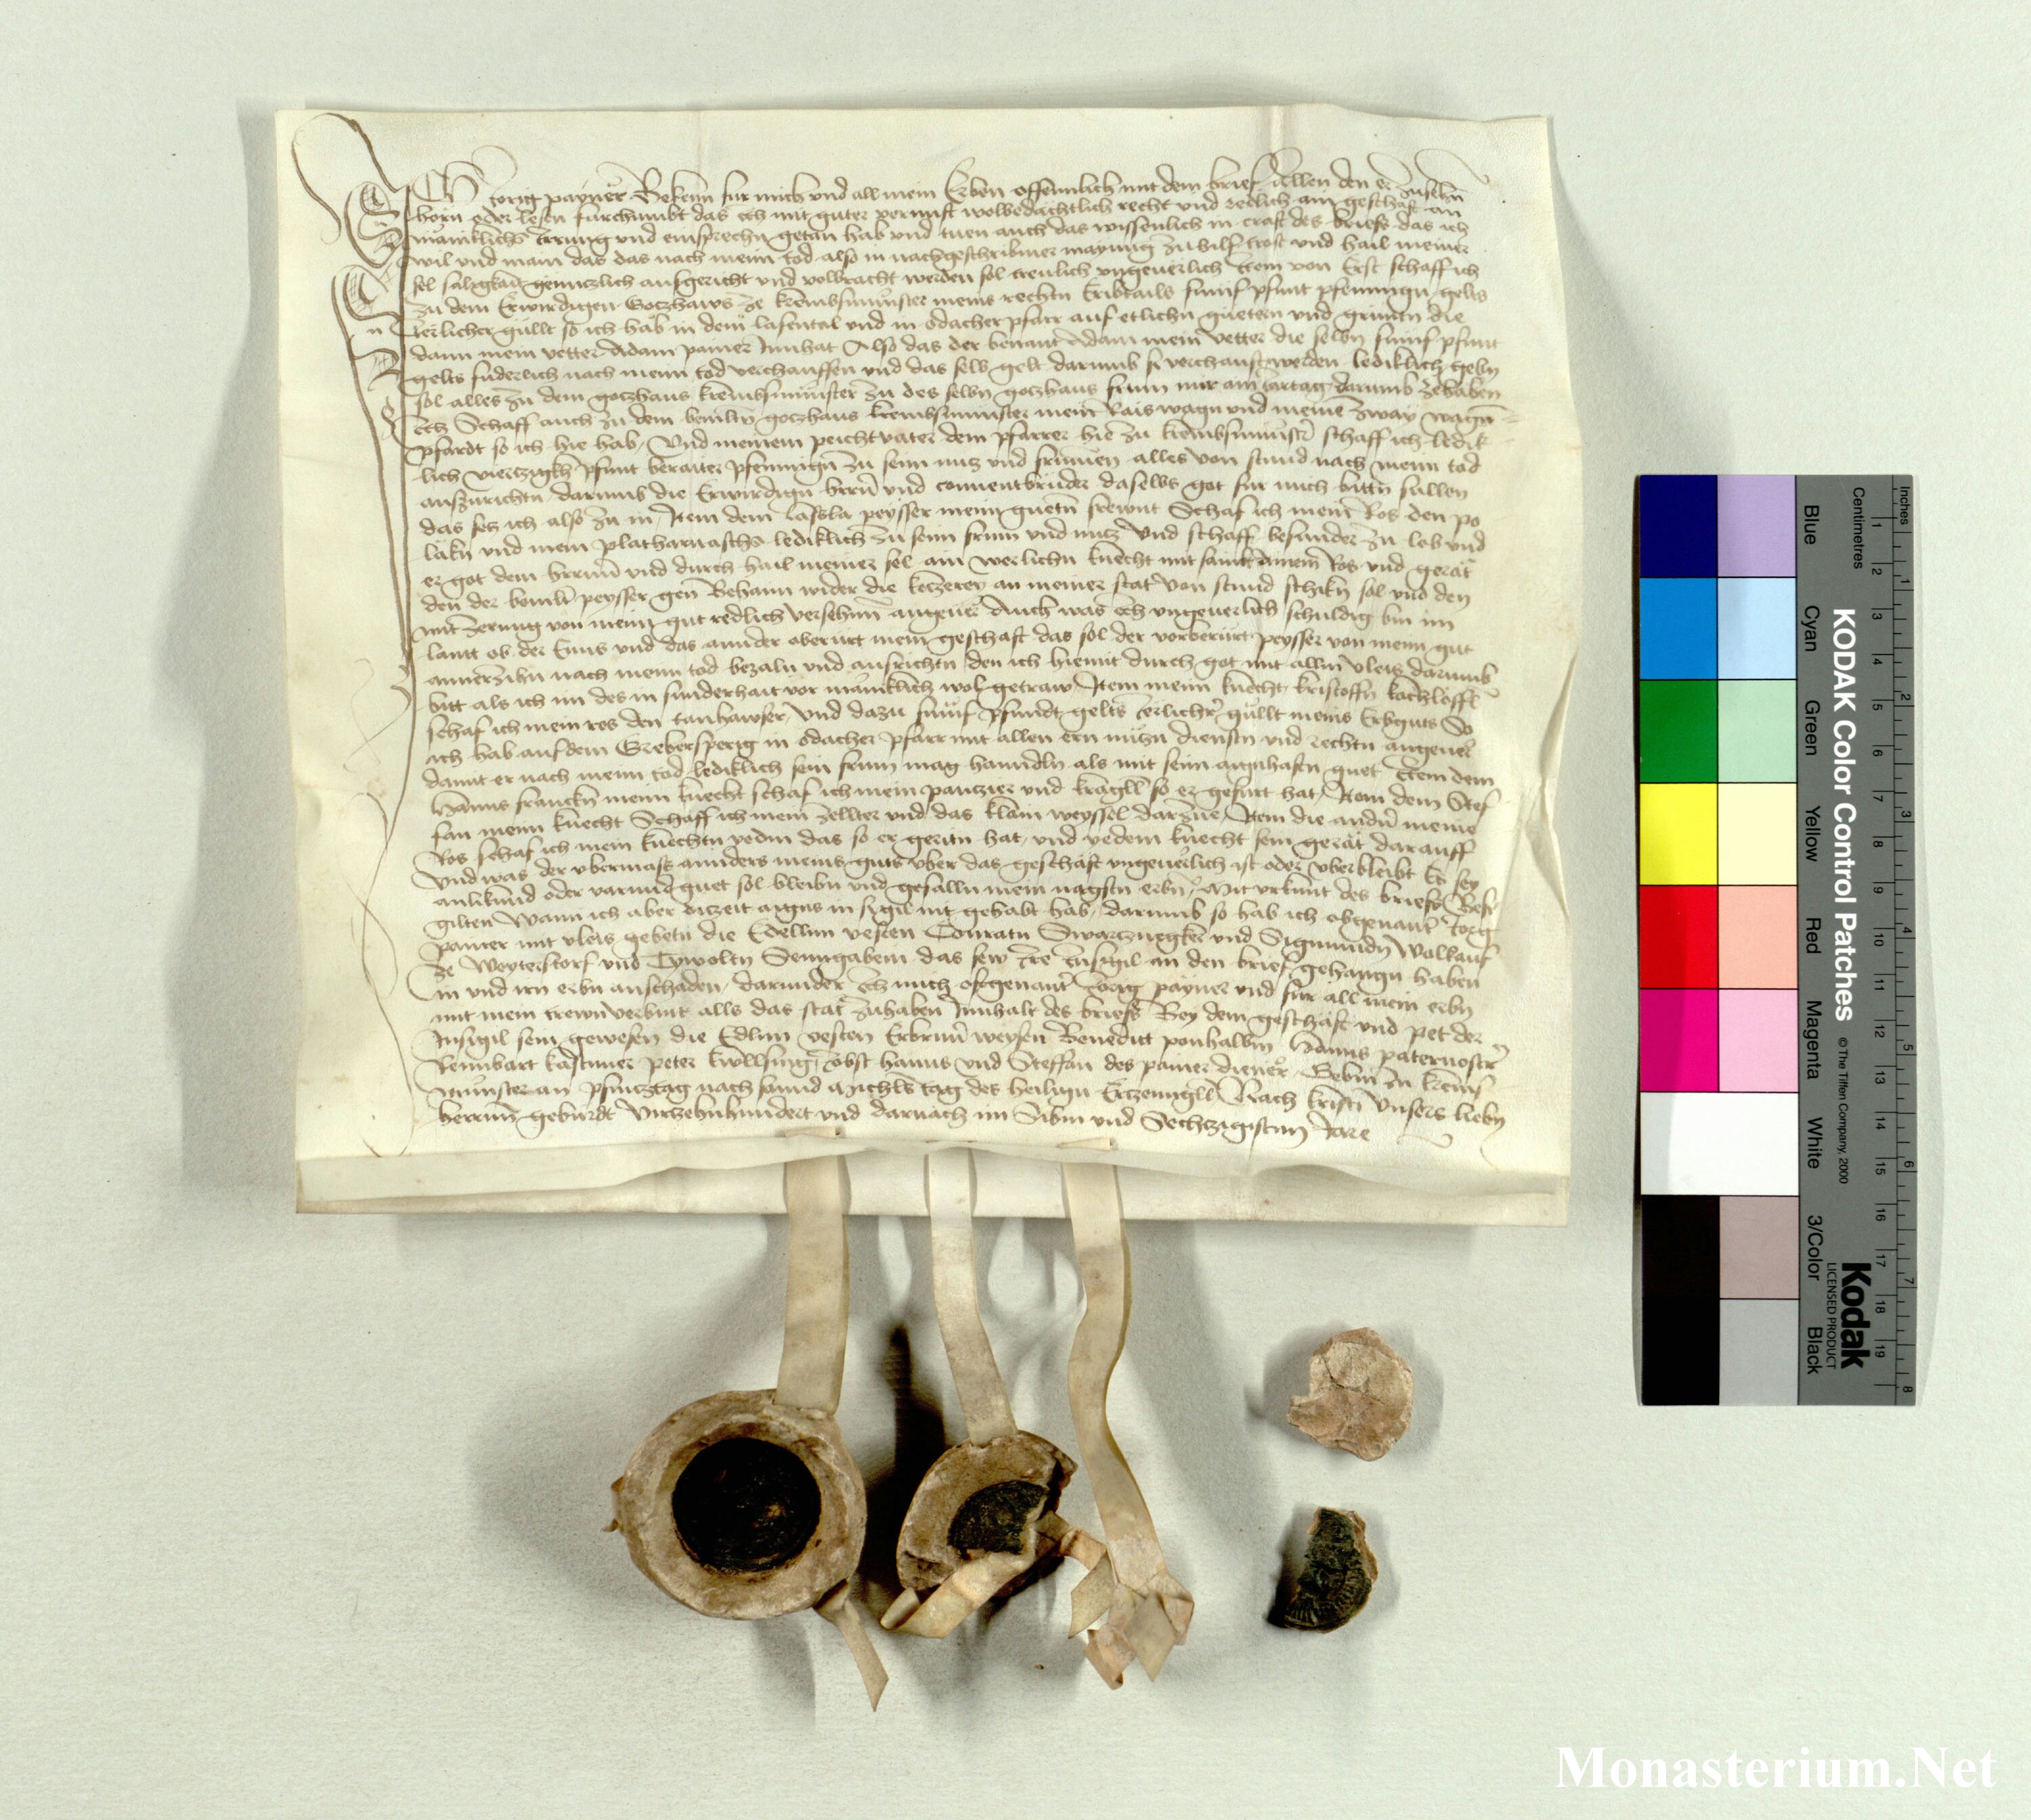 Ich Jorig payner Bekenn fur mich und all mein Erben offennlich mit dem brief allen den er zusehn
hörn oder lesen furchumbt das Ich mit guter vernunft wolbedächtlich recht und redlich ain geschäft an
mäniklichs Irrung und einsprechn getan hab und tuen auch das wissenlich in craft des briefs das ich
wil und main das das nach meinn tod also in nachgeschribner maynung zu hilf trost und hail meiner
sel säligkait gennczlich ausgericht und volbracht werden sol treulich ungeuerlich Item von Erst schaff ich
zu dem Erwirdigen Goczhaws ze krembsmunster meins rechtn Eribtails funf pfunt pfennign gelts
Jerlicher gullt so ich hab in dem lasental und in odacher pfarr auf etlichn guetern und gruntn die
dann mein vetter Adam painer Innhat Also das der benant Adam mein vetter die selbn funf pfunt
gelts fuderlich nach meinn tod verchauffen und das selb gelt darumb si verchauft werden lediklich gebn
sol alles zu dem goczhaus krembsmunster zu des selbn goczhaus frum mir ain Jartag darumb zehaben
Ich Schaff auch zu dem bemltn goczhaus krembsmunster mein Rais wagn und meine zway wagn
pfardt so ich hie hab / Und meinem peichtvater dem pfarrer hie zu krembsmunster schaff ich ledik
lich vierczigkh pfunt beraiter pfennign zu seim nuz und frumen alles von stund nach meinn tod
auszurichtn darumb die Erwirdign herrn und conuentbruder daselbs got fur mich bittn sullen
das secz ich also zu in / Item dem lassla peysser meim guetn frewnt Schaf ich mein Ros den po
läkn und mein platharnasch lediklich zu seim frum und nucz Und schaff besunder zu lob und
er got dem herrnn und durch hail meiner sel ain werlichn knecht mit sambt ainem Ros und gerät
den der bemlt peysser gen Behaim wider die keczerey an meiner stat von stund schikn sol und den
mit zerung von meim gut redlich versehnn angeuer Auch was Ich ungeuerlich schuldig bin im
lantt ob der Enns und das annder oberurt mein geschäft das sol der vorberurt peysser von meinn gut
annverzihn nach meinn tod bezaln und ausrichtn den ich hiemit durch got mit allm vleis darumb
bitt als ich im des in sunderhait vor mäniklich wol getraw Item meinn knecht kristoffn kochloffl
schaf ich mein ros den tanhawser / Und dazu funf pfundt gelts Jerlichr gullt meins Erbguts So
ich hab auf dem Grebersperig in odacher pfarr mit allen ern nuczn diensten und rechtn angeuer
damit er nach meinn tod lediklich sein frum mag hanndln als mit seim aignhaftn guet Item dem
Hanns franckn meinn knecht schaf ich mein panczier und krägll so er gefurt hat / Item dem Stef
fan meinn knecht Schaff ich mein zellter und das klain weyssel darzue / Item die andrn meine
Ros schaf ich mein knechtn yedm das so er geritn hat / und yedem knecht sein gerät darauff
Und was der ubermass annders meins guts uber das geschäft ungeuerlich ist oder uberbleibt Es sey
anlikund oder varund guet sol bleibn und gefalln mein nagstn erbn / Mit urkunt des briefs Besi
gilten Wann ich aber diczeit aigns in sigil nit gehabt hab / darumb so hab ich obgenant Jorg
painer mit vleis gebetn die Edellnn vesten Conratn Swarcznegker und Sigmundn Walkauf
ze Weyterstorf und Tywoltn Sennigabem das sew Ire Insigil an den brief gehangn haben
in und irn erbn anschaden / darunder Ich mich ofgenant Jorig payner und fur all mein erbn
mit mein trewn verbint alls das stat zuhaben Innhalt des briefs Bey dem geschäft und pet der
Insigil sein gewesen die Edlnn vesten Erbrnn weysen Benedict ponhalbm Hanns paternostr
Reinhart kastnner peter kwllsing Jobst hanns und Steffan des painer diener Gebm zu krems
munster an pfincztag nach sannd Michls tag des heilign Erczenngll Nach kristi unsers liebn
herrnn geburdt Vierczehnhundert und darnach im Sibm und Sechczigistnn Jare
KODAK Color Control Patches
© The Tiffen Company, 2000
Kodak
LICENSED PRODUCT
Inches
Centimetres
1 2 3 4 5 6 7 8
1 2 3 4 5 6 7 8 9 10 11 12 13 14 15 16 17 18 19
Blue Cyan Green Yellow Red Magenta White 3/Color Black
Monasterium.Net